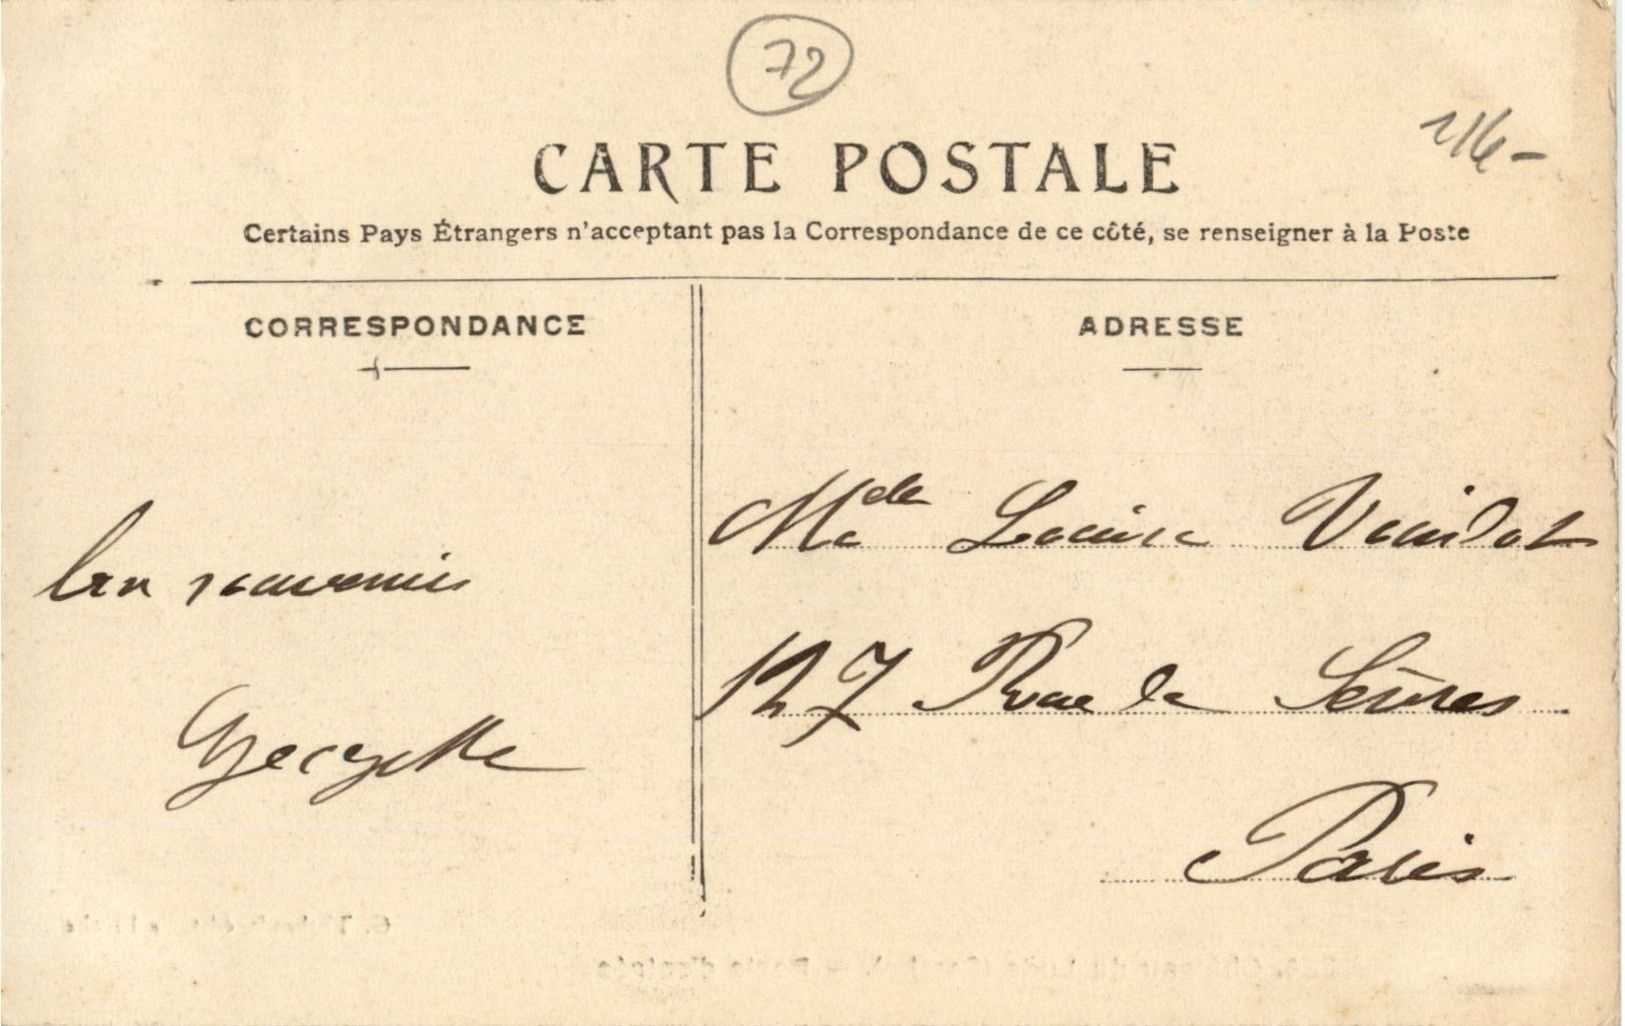 72
CARTE POSTALE
Certains Pays Étrangers n'acceptant pas la Correspondance de ce côté, se renseigner à la Poste
CORRESPONDANCE
ADRESSE
souvenir
Georgette
Louise
127 Rue de Sèvres
Paris